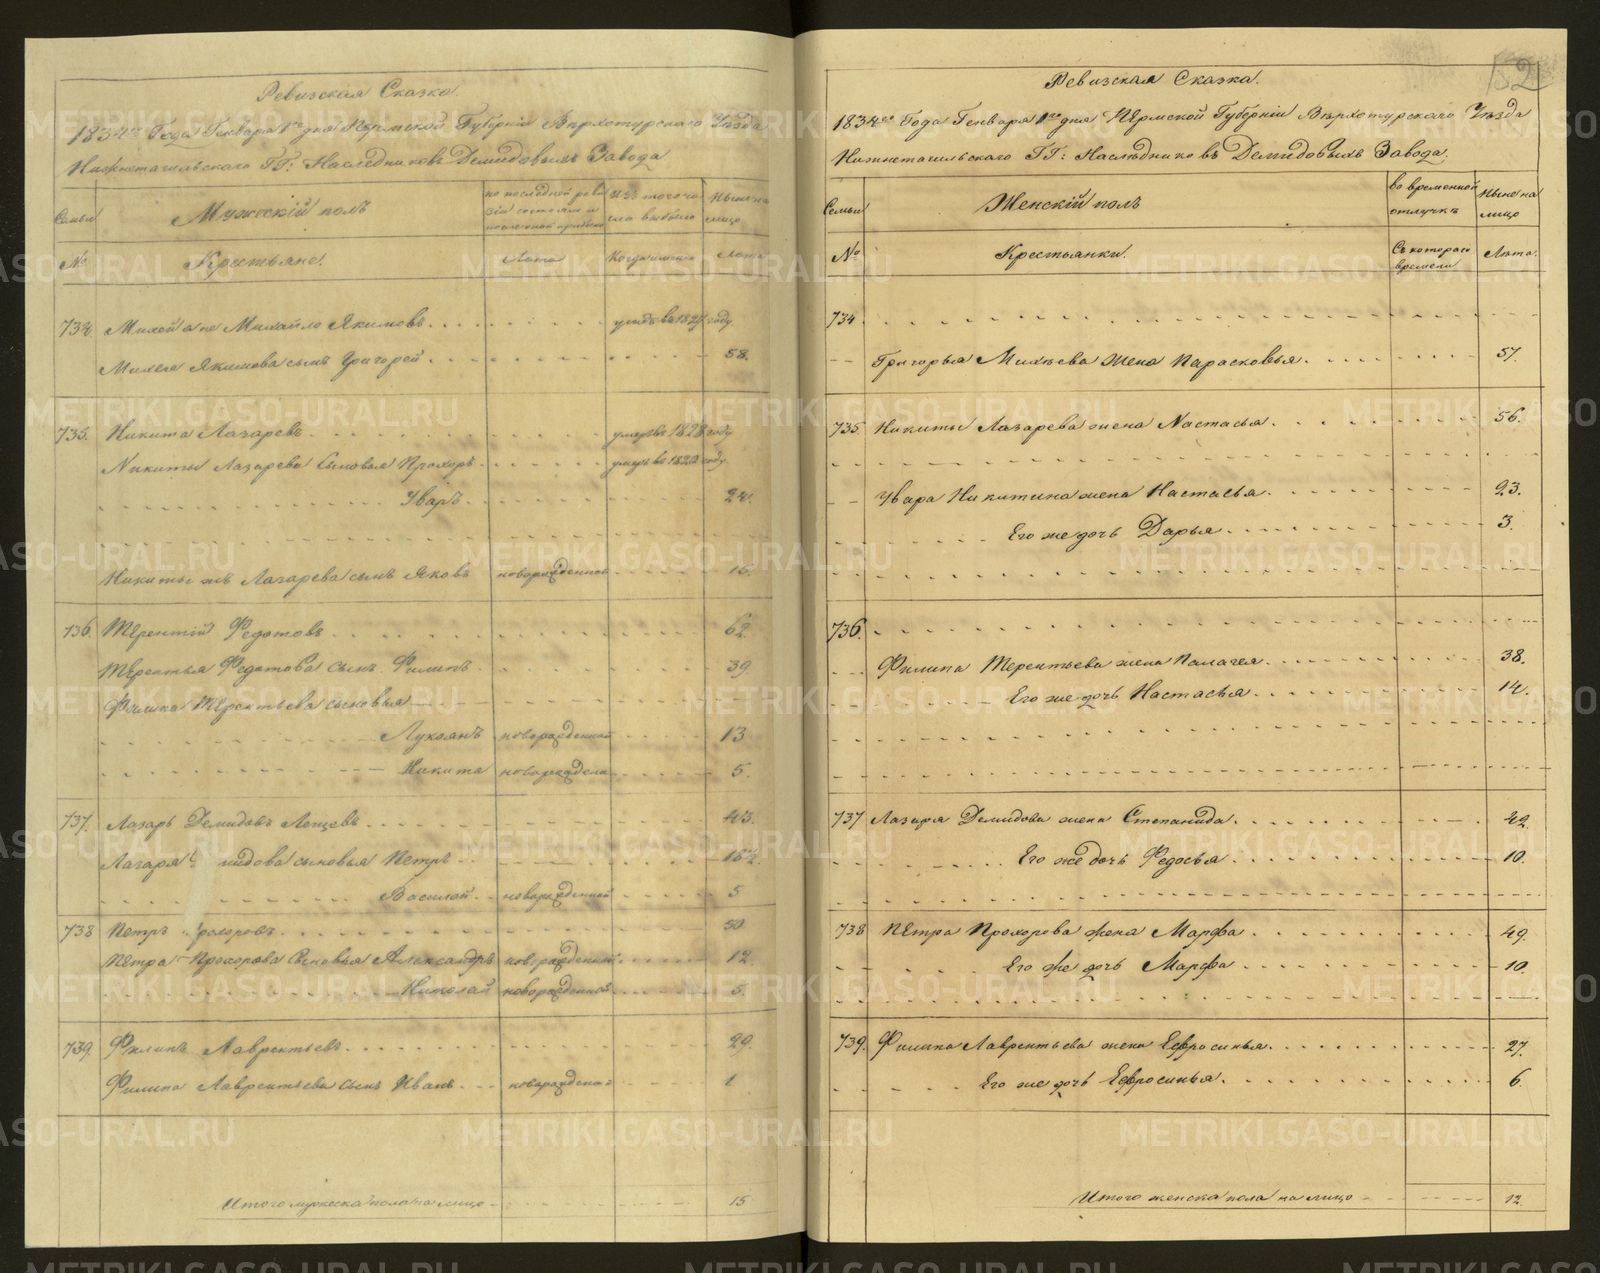 Ревизская Сказка.
1834го Года Генваря 1го дня Пермской Губернiи Верхотурскаго Уезда
Нижнетагильскаго ГГ: Наследниковъ Демидовыхъ Завода
Семьи Мужескiй полъ по последней ревизiи состояло и после оной прибыло Изъ того числа выбыло Ныне на лицо
№ Крестьяне. Лета Когда именно Лета
734 Михей а не Михайло Якимовъ умеръ в 1827 году
Михея Якимова сынъ Григорей 58.
735. Никита Лазаревъ умеръ в 1828 году
Никиты Лазарева сыновья Прохоръ умеръ в году
Уваръ 24.
Никиты жъ Лазарева сынъ Яковъ новорожденной 16.
736. Терентiй Федотовъ 62.
Терентья Федотова сынъ Филипъ 39
Филипа Терентьева сыновья
Лукоянъ новорожденной 13
Никита новорожден 5.
737. Лазарь Демидовъ 43.
Лазаря мидова сыновья Петръ
Василей новорожденной 5
738 Петръ рохоровъ 50
Петра Прохорова сыновья Александръ новорожденной 12.
Николай новорожденной 5.
739. Филипъ Лаврентьевъ 29.
Филипа Лаврентьева сынъ Иванъ новорожденной 1
Итого мужеска пола на лицо 15
52
Ревизская Сказка.
1834го Года Генваря 1го дня Пермской Губернiи Верхотурскаго Уезда
Нижнетагильскаго ГГ: Наследниковъ Демидовыхъ Завода.
Семьи Женскiй полъ во временной отлучке Ныне на лицо
№ Крестьянки. Съ котораго времени Лета.
734
Григорья Михеева жена Парасковья 57.
735 Никиты Лазарева жена Настасья 56.
Увара Никитина жена Настасья 23.
Его же дочь Дарья 3.
736.
Филипа Терентьева жена Палагея 38.
Его же дочь Настасья 14.
737 Лазаря Демидова жена Степанида 42.
Его же дочь Федосья 10.
738 Петра Прохорова жена Марфа 49.
Его же дочь Марфа 10.
739. Филипа Лаврентьева жена Ефросинья 27.
Его же дочь Ефросинья 6.
Итого женска пола на лицо 12.
METRIKI.GASO-URAL.RU